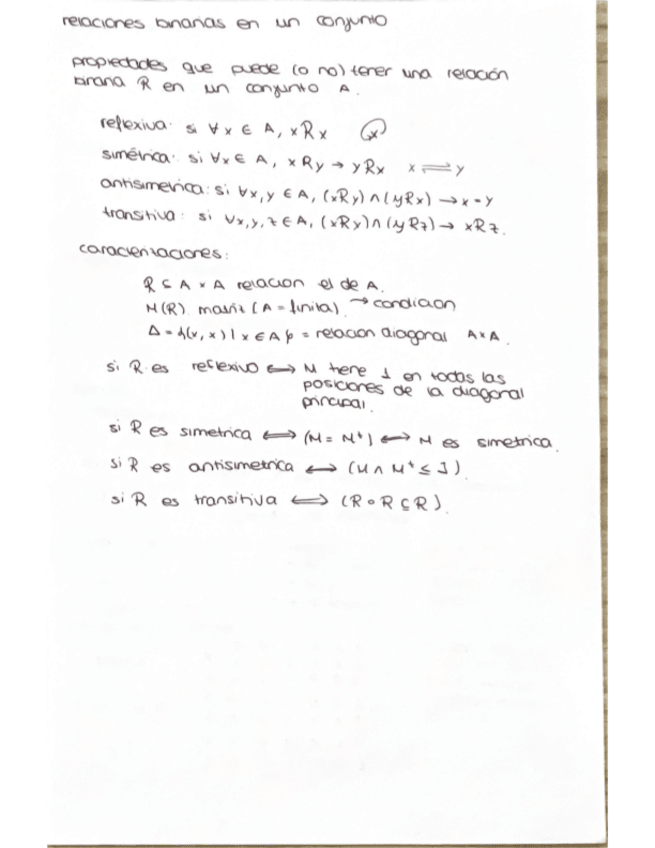 relaciones binarias en un conjunto
propiedades que puede (o no) tener una relación
binaria R en un conjunto A.
reflexiva: si ∀x ∈ A, xRx x
simétrica: si ∀x ∈ A, xRy → yRx x ⇌ y
antisimetrica: si ∀x,y ∈ A, (xRy) ∧ (yRx) → x = y
transitiva: si ∀x,y,z ∈ A, (xRy) ∧ (yRz) → xRz.
caracterizaciones:
R ⊆ A × A relacion el de A.
M(R) matriz (A = finita) → condicion
Δ = {(x,x) | x ∈ A} = relacion diagonal A×A.
si R es reflexivo ⟷ M tiene 1 en todas las
posiciones de la diagonal
principal.
si R es simetrica ⟺ (M = Mᵗ) ⟷ M es simetrica.
si R es antisimetrica ⟷ (M ∧ Mᵗ ≤ I).
si R es transitiva ⟺ (R ∘ R ⊆ R).